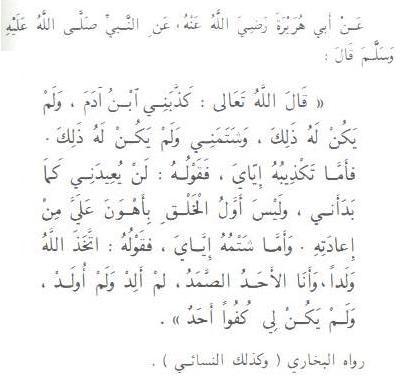 عَنْ أَبِي هُرَيْرَةَ رَضِيَ اللَّهُ عَنْهُ، عَنِ النَّبِيِّ صَلَّى اللَّهُ عَلَيْهِ
وَسَلَّمَ قَالَ :
« قَالَ اللَّهُ تَعَالى : كَذَّبَنِي ٱبْنُ آدَمَ ، وَلَمْ
يَكُنْ لَهُ ذَلِكَ ، وَشَتَمَنِي وَلَمْ يَكُنْ لَهُ ذَلِكَ .
فَأَمَّا تَكْذِيبُهُ إِيَّايَ ، فَقَوْلُهُ : لَنْ يُعِيدَنِي كَمَا
بَدَأَنِي ، وَلَيْسَ أَوَّلُ الْخَلْقِ بِأَهْوَنَ عَلَيَّ مِنْ
إِعَادَتِهِ . وَأَمَّا شَتْمُهُ إِيَّايَ ، فَقَوْلُهُ : اتَّخَذَ اللَّهُ
وَلَداً ، وَأَنَا الأَحَدُ الصَّمَدُ ، لَمْ أَلِدْ وَلَمْ أُولَدْ ،
وَلَمْ يَكُنْ لِي كُفُواً أَحَدٌ » .
رواه البخاري ( وكذلك النسائي ) .